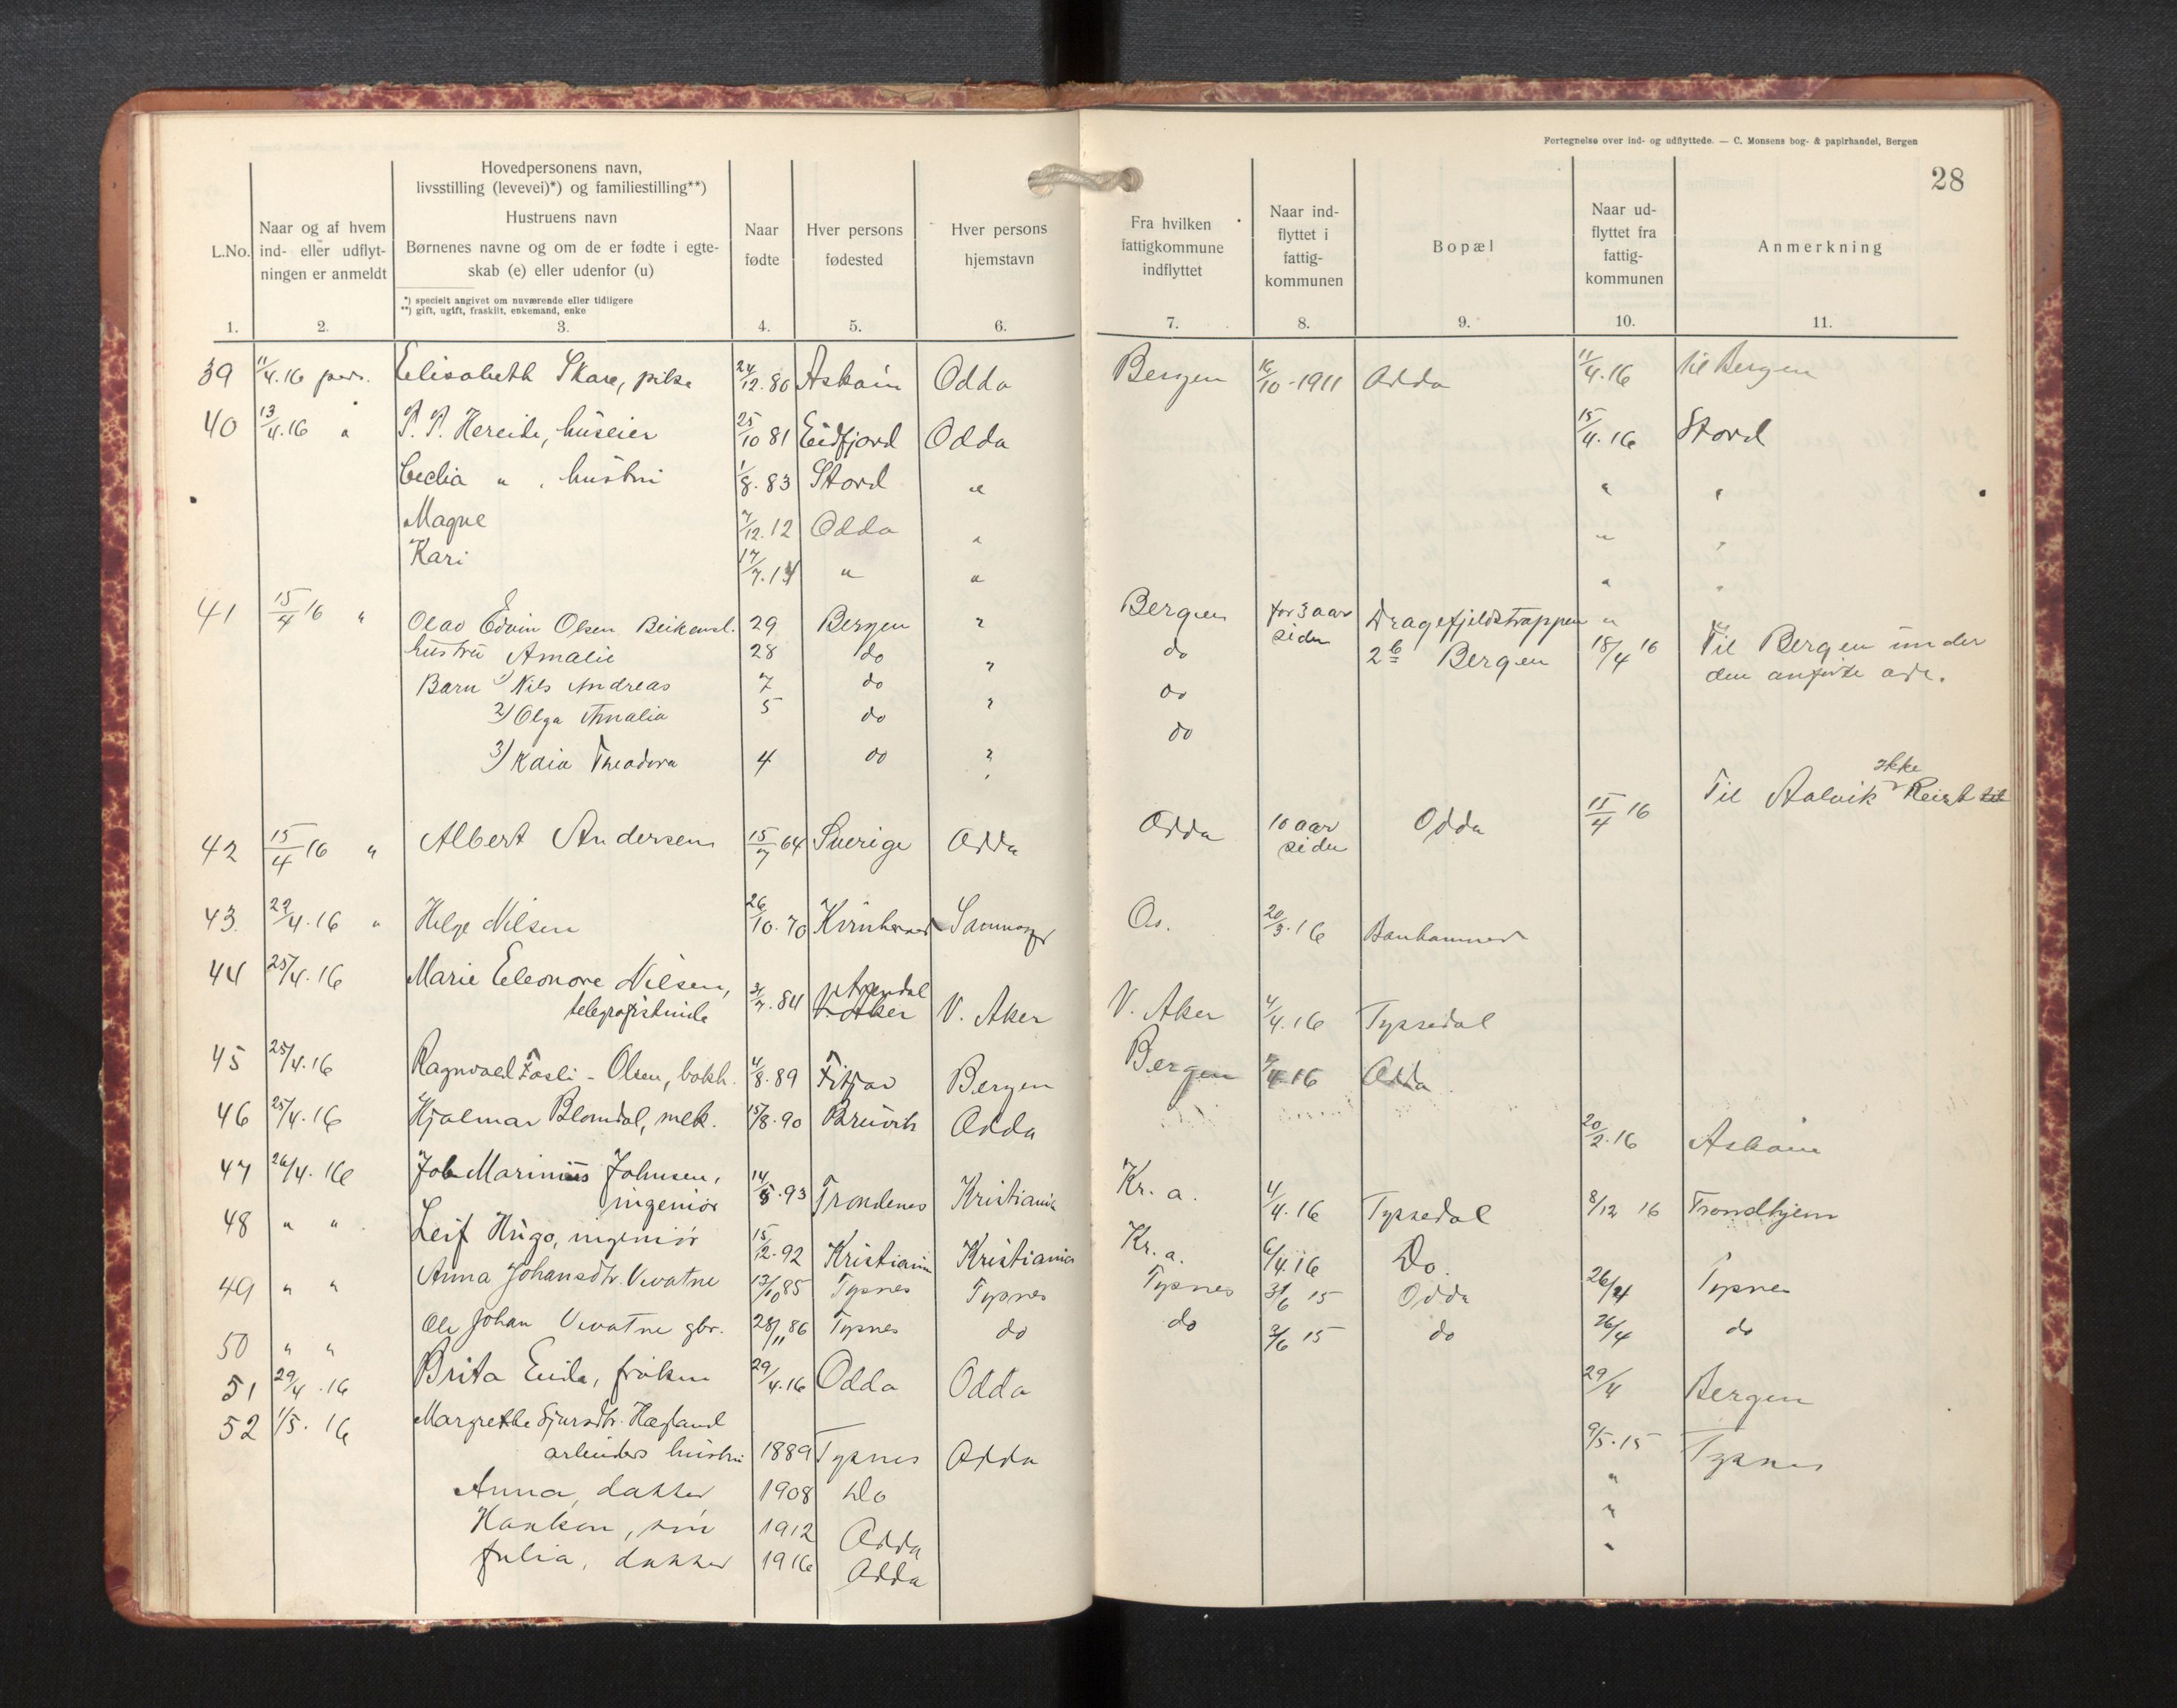 Fortegnelse over ind- og udflyttede. — C. Monsens bog- & papirhandel, Bergen
28
L.No.
Naar og af hvem ind- eller udflyt- ningen er anmeldt
Hovedpersonens navn,
livsstilling (levevei)*) og familiestilling**)
Hustruens navn
Børnenes navne og om de er fødte i egte-
skab (e) eller udenfor (u)
*) specielt angivet om nuværende eller tidligere
**) gift, ugift, fraskilt, enkemand, enke
Naar fødte
Hver persons fødested
Hver persons hjemstavn
Fra hvilken fattigkommune indflyttet
Naar ind- flyttet i fattig- kommunen
Bopæl
Naar ud- flyttet fra fattig- kommunen
Anmerkning
1. 2. 3. 4. 5. 6. 7. 8. 9. 10. 11.
39 11/4.16 pers. Elisabeth Skare, pike 24/12.86 Askøin Odda Bergen 16/10-1911 Odda 11/4.16 til Bergen
40 13/4.16 " P. P. Hereide, huseier 25/10 81 Eidfjord Odda 15/4.16 Stord
Cecilia " , hustru 1/8.83 Stord " " "
Magne 7/12.12 Odda " " "
Kari 17/7.14 " " " "
41 15/4 16 " Olav Edvin Olsen 29 Bergen ? Bergen for 3 aar siden Dragefjeldstrappen "
hustru Amalie 28 do ? do 2b Bergen 18/4 16 Til Bergen under
Barn 1) Nils Andreas 7 do ? do den anførte adr.
2) Olga Amalia 5 do ? do
3) Kaia Theodora 4 do ?
42 15/4 16 " Albert Andersen 15/7 64 Sverige Odda Odda 10 aar siden Odda 15/4 16 Til Aalvik ikke Reist til
43. 22/4.16 " Helge Nilsen 26/10.70 Os. 20/3.16
44 25/4.16 Marie Eleonore Nilsen, 84 Arendal V. Aker V. Aker V. Aker 4/4.16 Tyssedal
telegrafistinde
45 25/4.16 Ragnvald Fosli-Olsen, bokh. 4/8.89 Fitjar Bergen Bergen 4.16 Odda
46 25/4.16 Hjalmar Blomdal, mek. 15/8.90 Bruvik Odda 20/2.16 Askøin
47 26/4.16 Job Marinius Johnsen, 93 Trondenes Kristiania Kr. a. 4/4.16 Tyssedal 8/12 16 Trondhjem
ingeniør
48 " " Leif Hugo, ingeniør 15/12.92 Kristiania Kristiania Kr. a. 6/4.16 Do.
49 " " Anna Johansdtr. Vevatne 13/10 85 Tysnes Tysnes Tysnes 15 Odda 26/4 Tysnes
50 " " Ole Johan Vevatne gbr. 28/11 86 Tysnes do do 15 do 26/4 do
51 29/4.16 Brita Eide, frøken 29/4.16 Odda Odda 29/4 Bergen
52 1/5.16 Margrethe Sjursdtr. Hægland
arbeiders hustru 1889 Tysnes Odda 9/5.15 Tysnes
Anna, datter 1908 Do "
Haakon, søn 1912 Odda "
Julia, datter 1916 Odda "